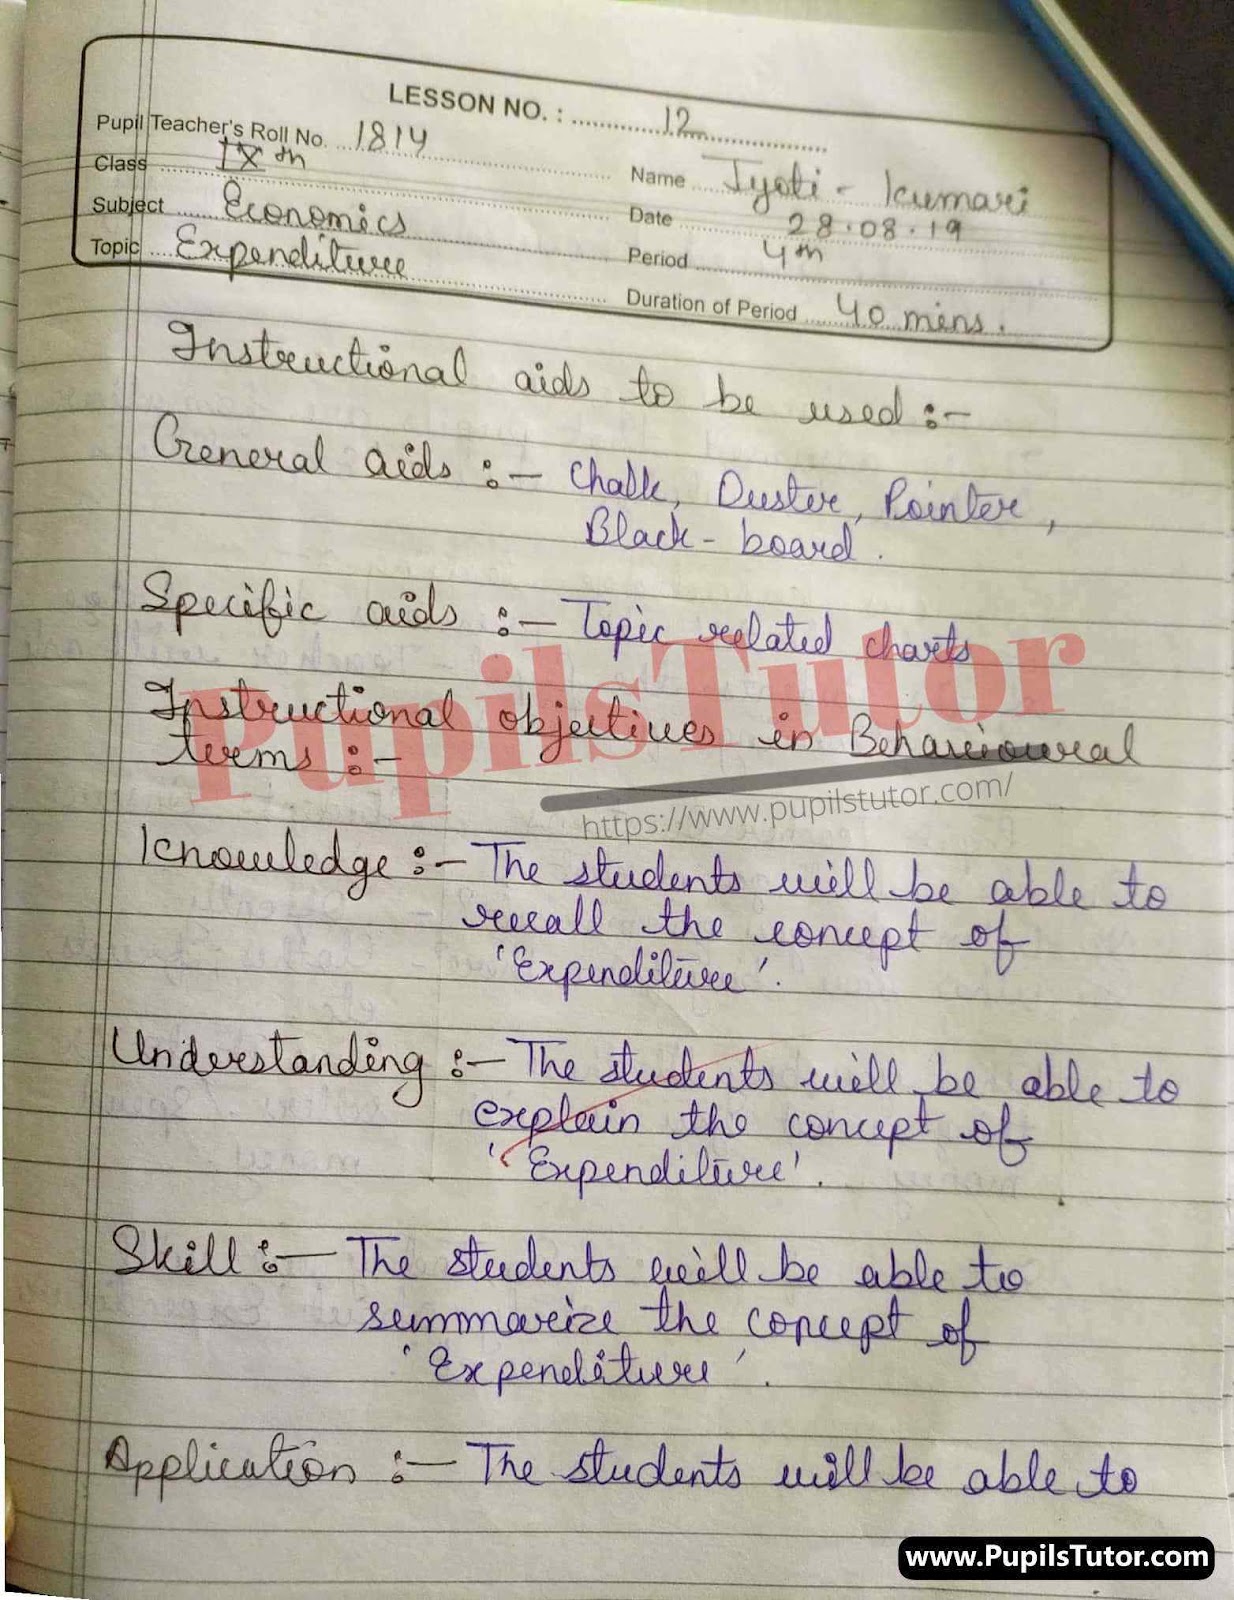 LESSON NO. : 12
Pupil Teacher's Roll No. 1814
Class IXth
Subject Economics
Topic Expenditure
Name Jyoti - Kumari
Date 28.08.19
Period 4th
Duration of Period 40 mins.
Instructional aids to be used :-
General aids :- Chalk, Duster, Pointer,
Black-board.
Specific aids :- Topic related charts
Instructional objectives in Behavioural
terms :-
PupilsTutor
https://www.pupilstutor.com/
Knowledge :- The students will be able to
recall the concept of
'Expenditure'.
Understanding :- The students will be able to
explain the concept of
'Expenditure'.
Skill :- The students will be able to
summarize the concept of
'Expenditure'.
Application :- The students will be able to
www.PupilsTutor.com